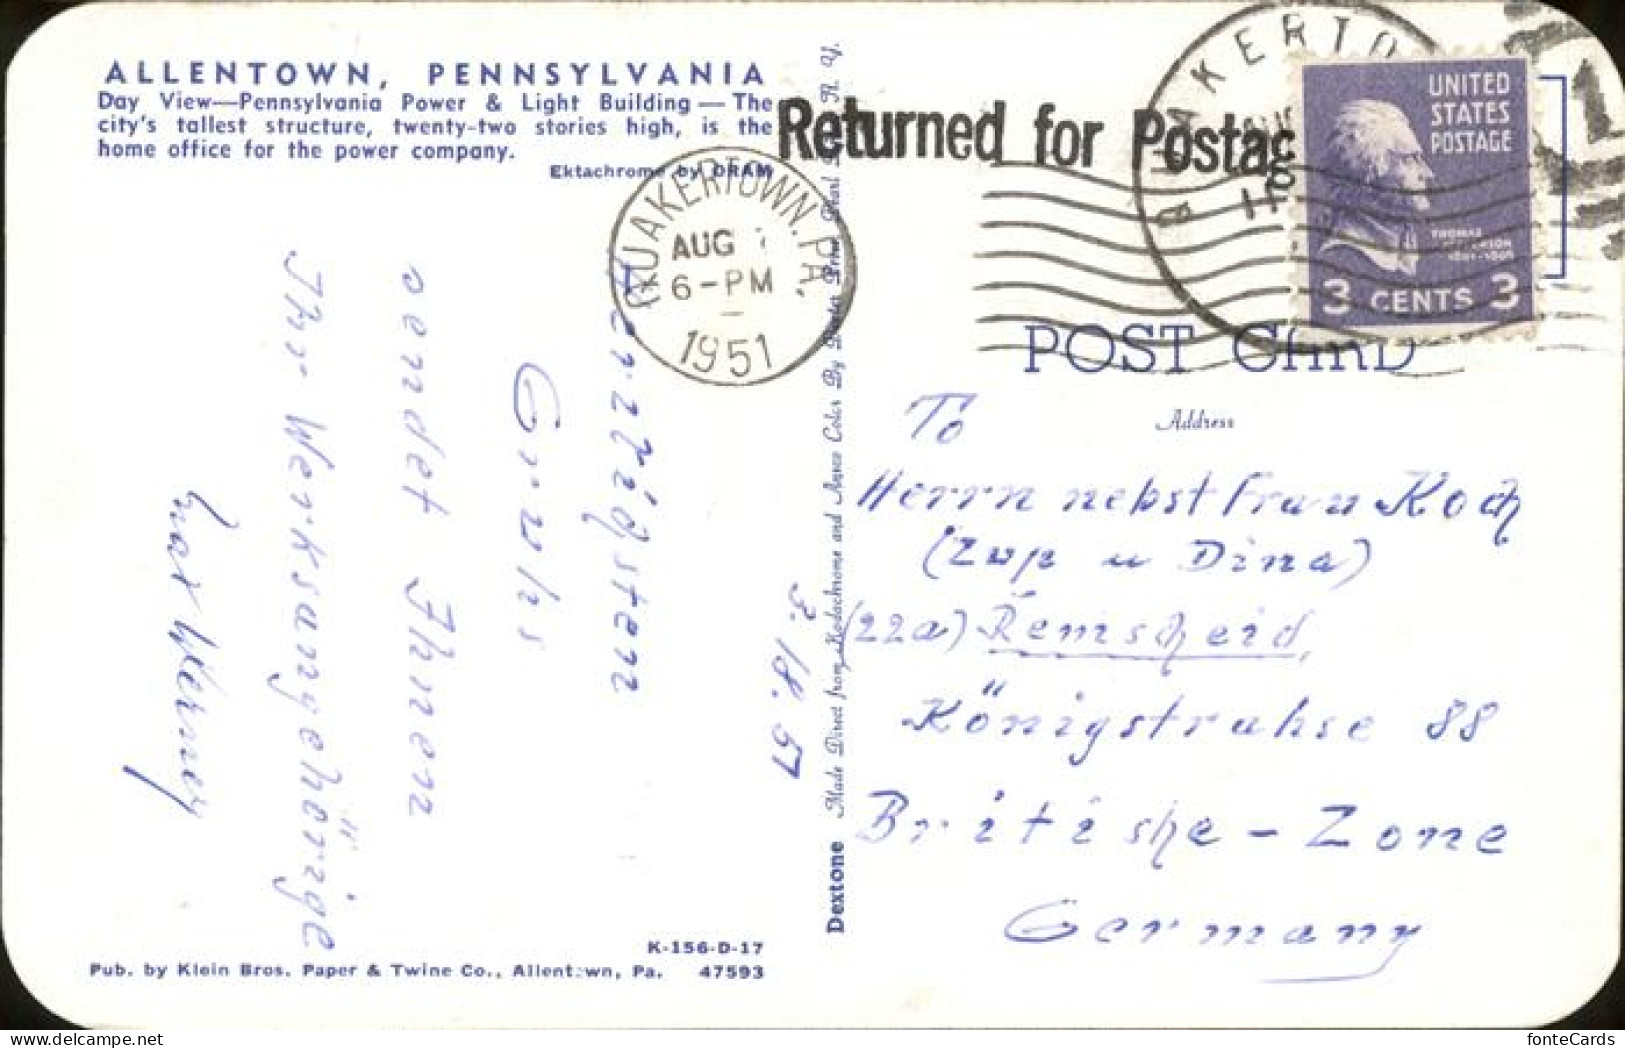 ALLENTOWN, PENNSYLVANIA
Day View—Pennsylvania Power & Light Building — The
city's tallest structure, twenty-two stories high, is the
home office for the power company.
Ektachrome by DRAM
QUAKERTOWN. PA.
AUG
6-PM
1951
Returned for Postag
QUAKERTO
UNITED
STATES
POSTAGE
THOMAS
JEFFERSON
1801-1809
3 CENTS 3
POST CARD
Address
3. 18. 51
Herzligsten
Gruhs
sendet Ihnen
Ihr Werksangehörige
Max Werner
To
Herrn nebst Frau Koch
(Zup u Dina)
(22a) Remscheid,
Königstrahse 88
Britishe - Zone
Germany
Dextone Made Direct from Kodachrome and Ansco Color By Dexter Press, Pearl River, N. Y.
K-156-D-17
Pub. by Klein Bros. Paper & Twine Co., Allentown, Pa. 47593
fonteCards